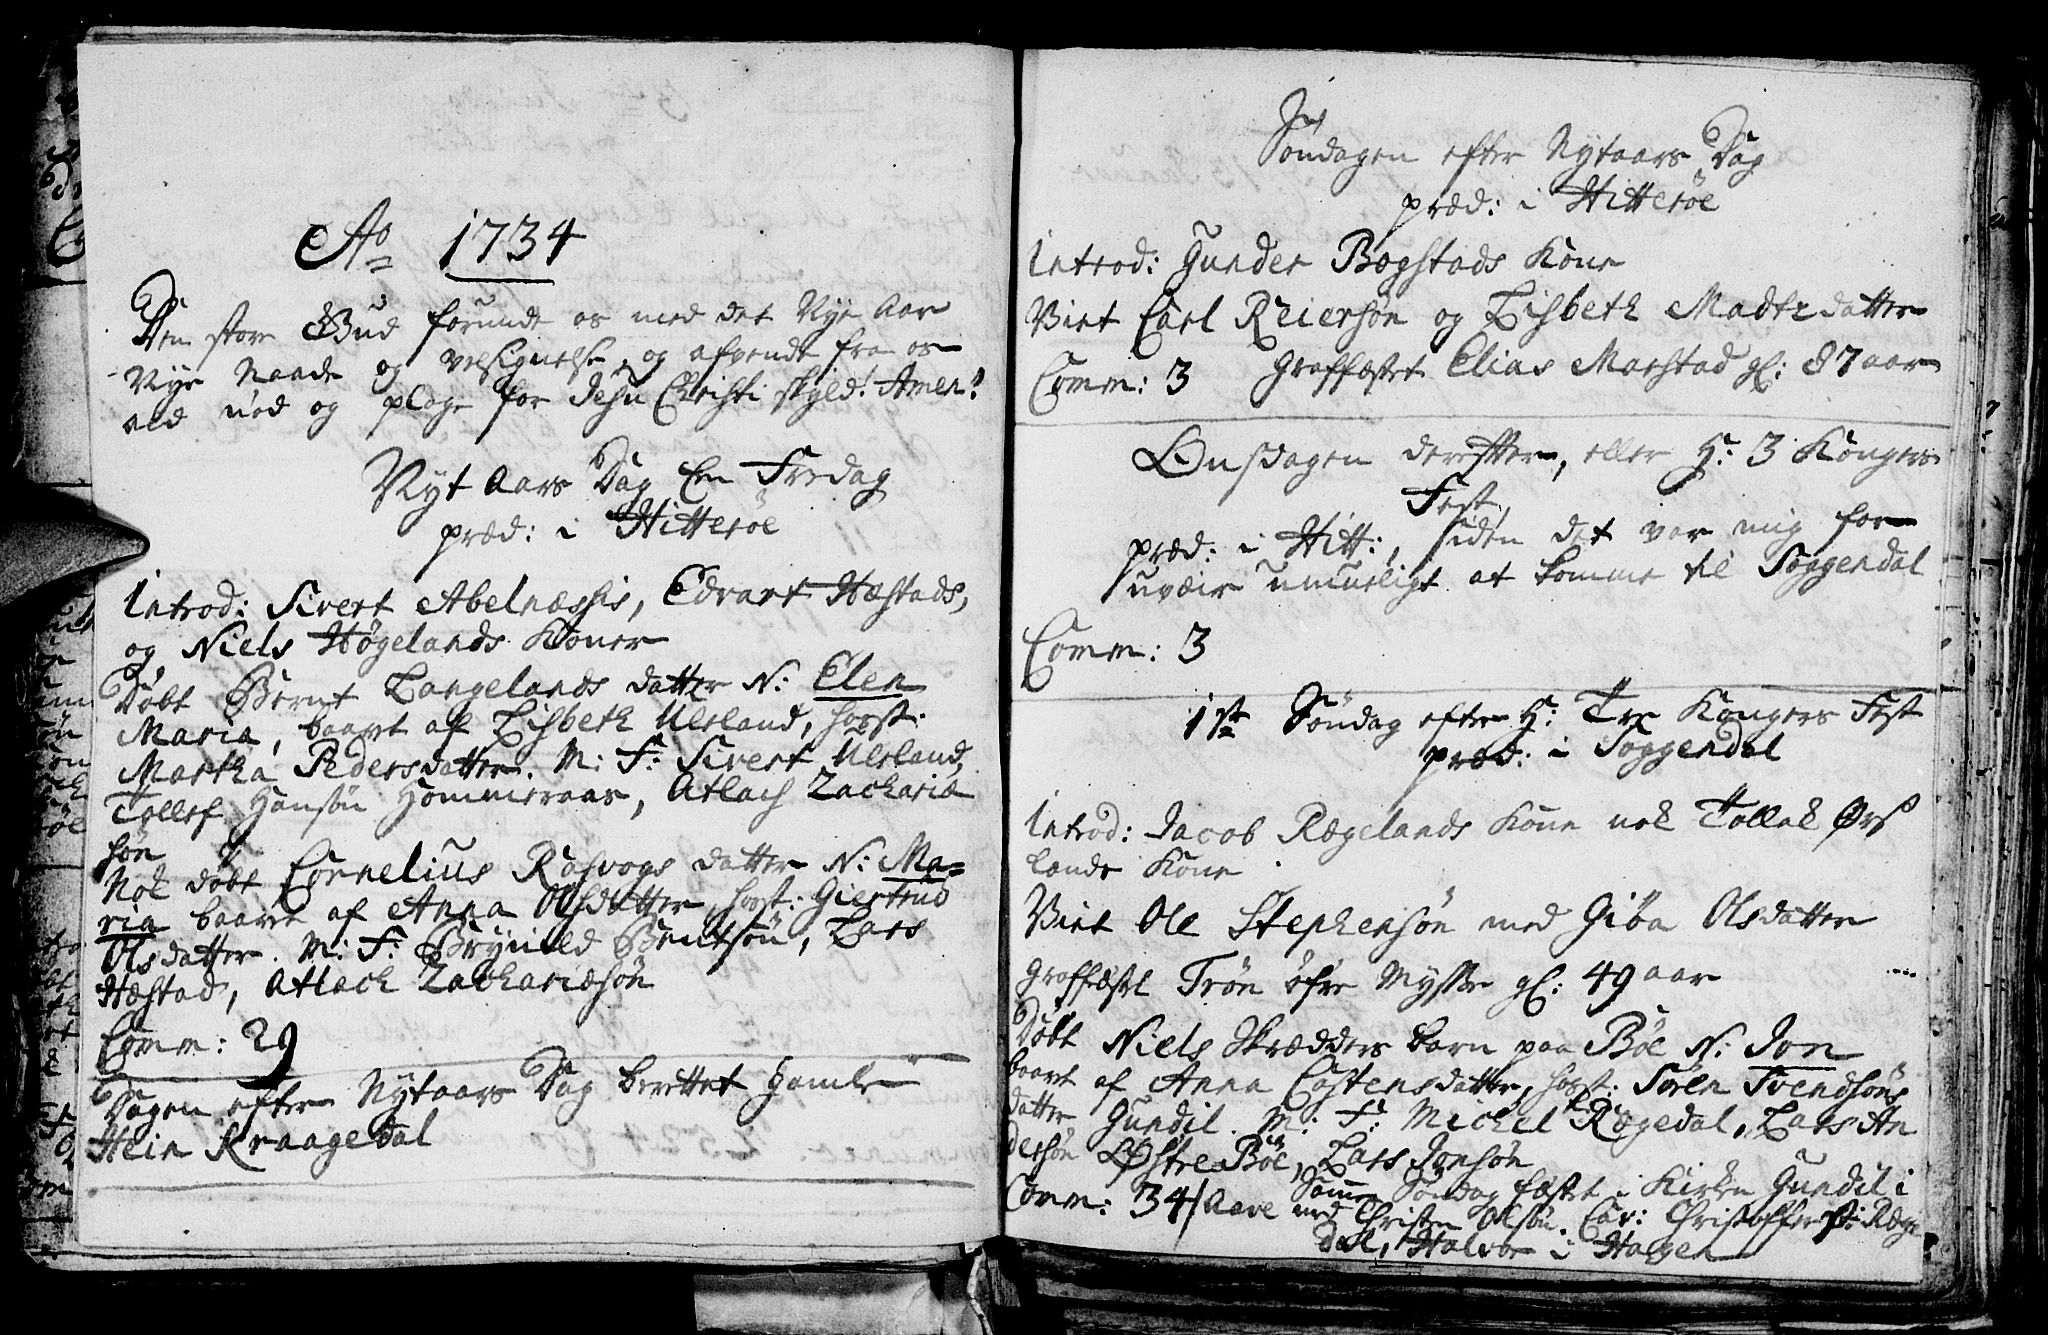 Ao 1734
Den store Gud forunde os med det Nye Aar
Nye Naade og velsignelse, og afvende fra os
ald nød og plage for Jesu Christi skyld! Amen!
Nyt Aars Dag en Fredag
præd: i Hitterøe
Introd: Sivert Abelnæssis, Edvart Hæstads,
og Niels Høgelands Koner
Døbt Bernt Langelands datter N: Elen
Maria, baart af Lisbeth Ulsland, host:
Martha Pedersdatter. M: F: Sivert Ulsland,
Tollef Hansøn Hommeraas, Atlach Zachariæ
søn
Nok døbt Cornelius Rasvogs datter N: Ma=
ria baaret af Anna Olsdatter, host: Giertrud
Olsdatter. M: F: Brynild Bentsøn, Lars
Hæstad, Atlach Zachariæsøn
Comm: 29
Dagen efter Nytaars Dag berettet gamle
Hein Kraagedal
Søndagen efter Nytaars Dag
præd: i Hitterøe
Introd: Gunder Bøgstads Kone
Viet Carl Reiersøn og Lisbeth Madtzdatter
Comm: 3 Graffæstet Elias Marstad gl: 87 aar
Onsdagen derefter, eller H: 3 Kongers
Fest,
præd: i Hitt:, siden det var mig for
uvæir umueligt at komme til Soggendal
Comm: 3
1ste Søndag efter H: Tre Kongers Fest
præd: i Soggendal
Introd: Jacob Rægelands Kone nok Tollak Ørs
lands Kone
Viet Ole Stephensøn med Giøa Olsdatter
Graffæstet Trøn øfre Mysse gl: 49 aar
Døbt Niels Skrædders barn paa Bøe N: Jon
baart af Anna Costensdatter, host: Søren Svendsøns
datter Gundil. M: F: Michel Rægedal, Lars An
dersøn Østre Bøe, Lars Jonsøn
Comm: 34 / Samme Søndag fæstet i Kirken Gundil i
Aare med Christen Olsøn. Cav: Christoffer i Ræge
dal, Halvor i Halgen